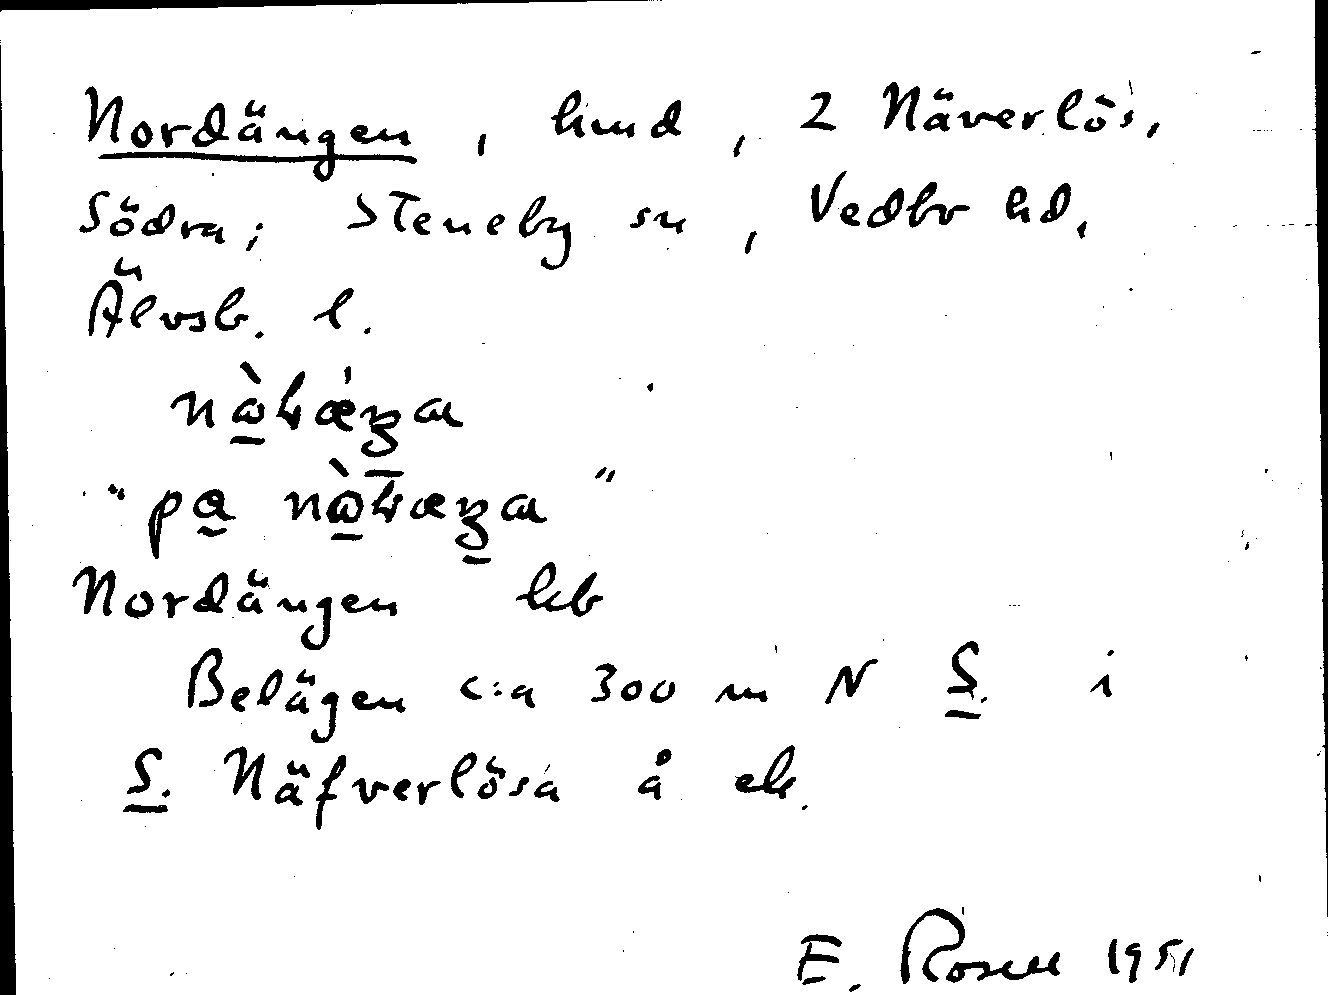 Nordängen, hmd, 2 Näverlös,
Södra; Steneby sn, Vedbo hd,
Älvsb. l.
"på
Nordängen hb
Belägen c:a 300 m N S. i
S. Näfverlösa å ek.
E. Rosell 1951